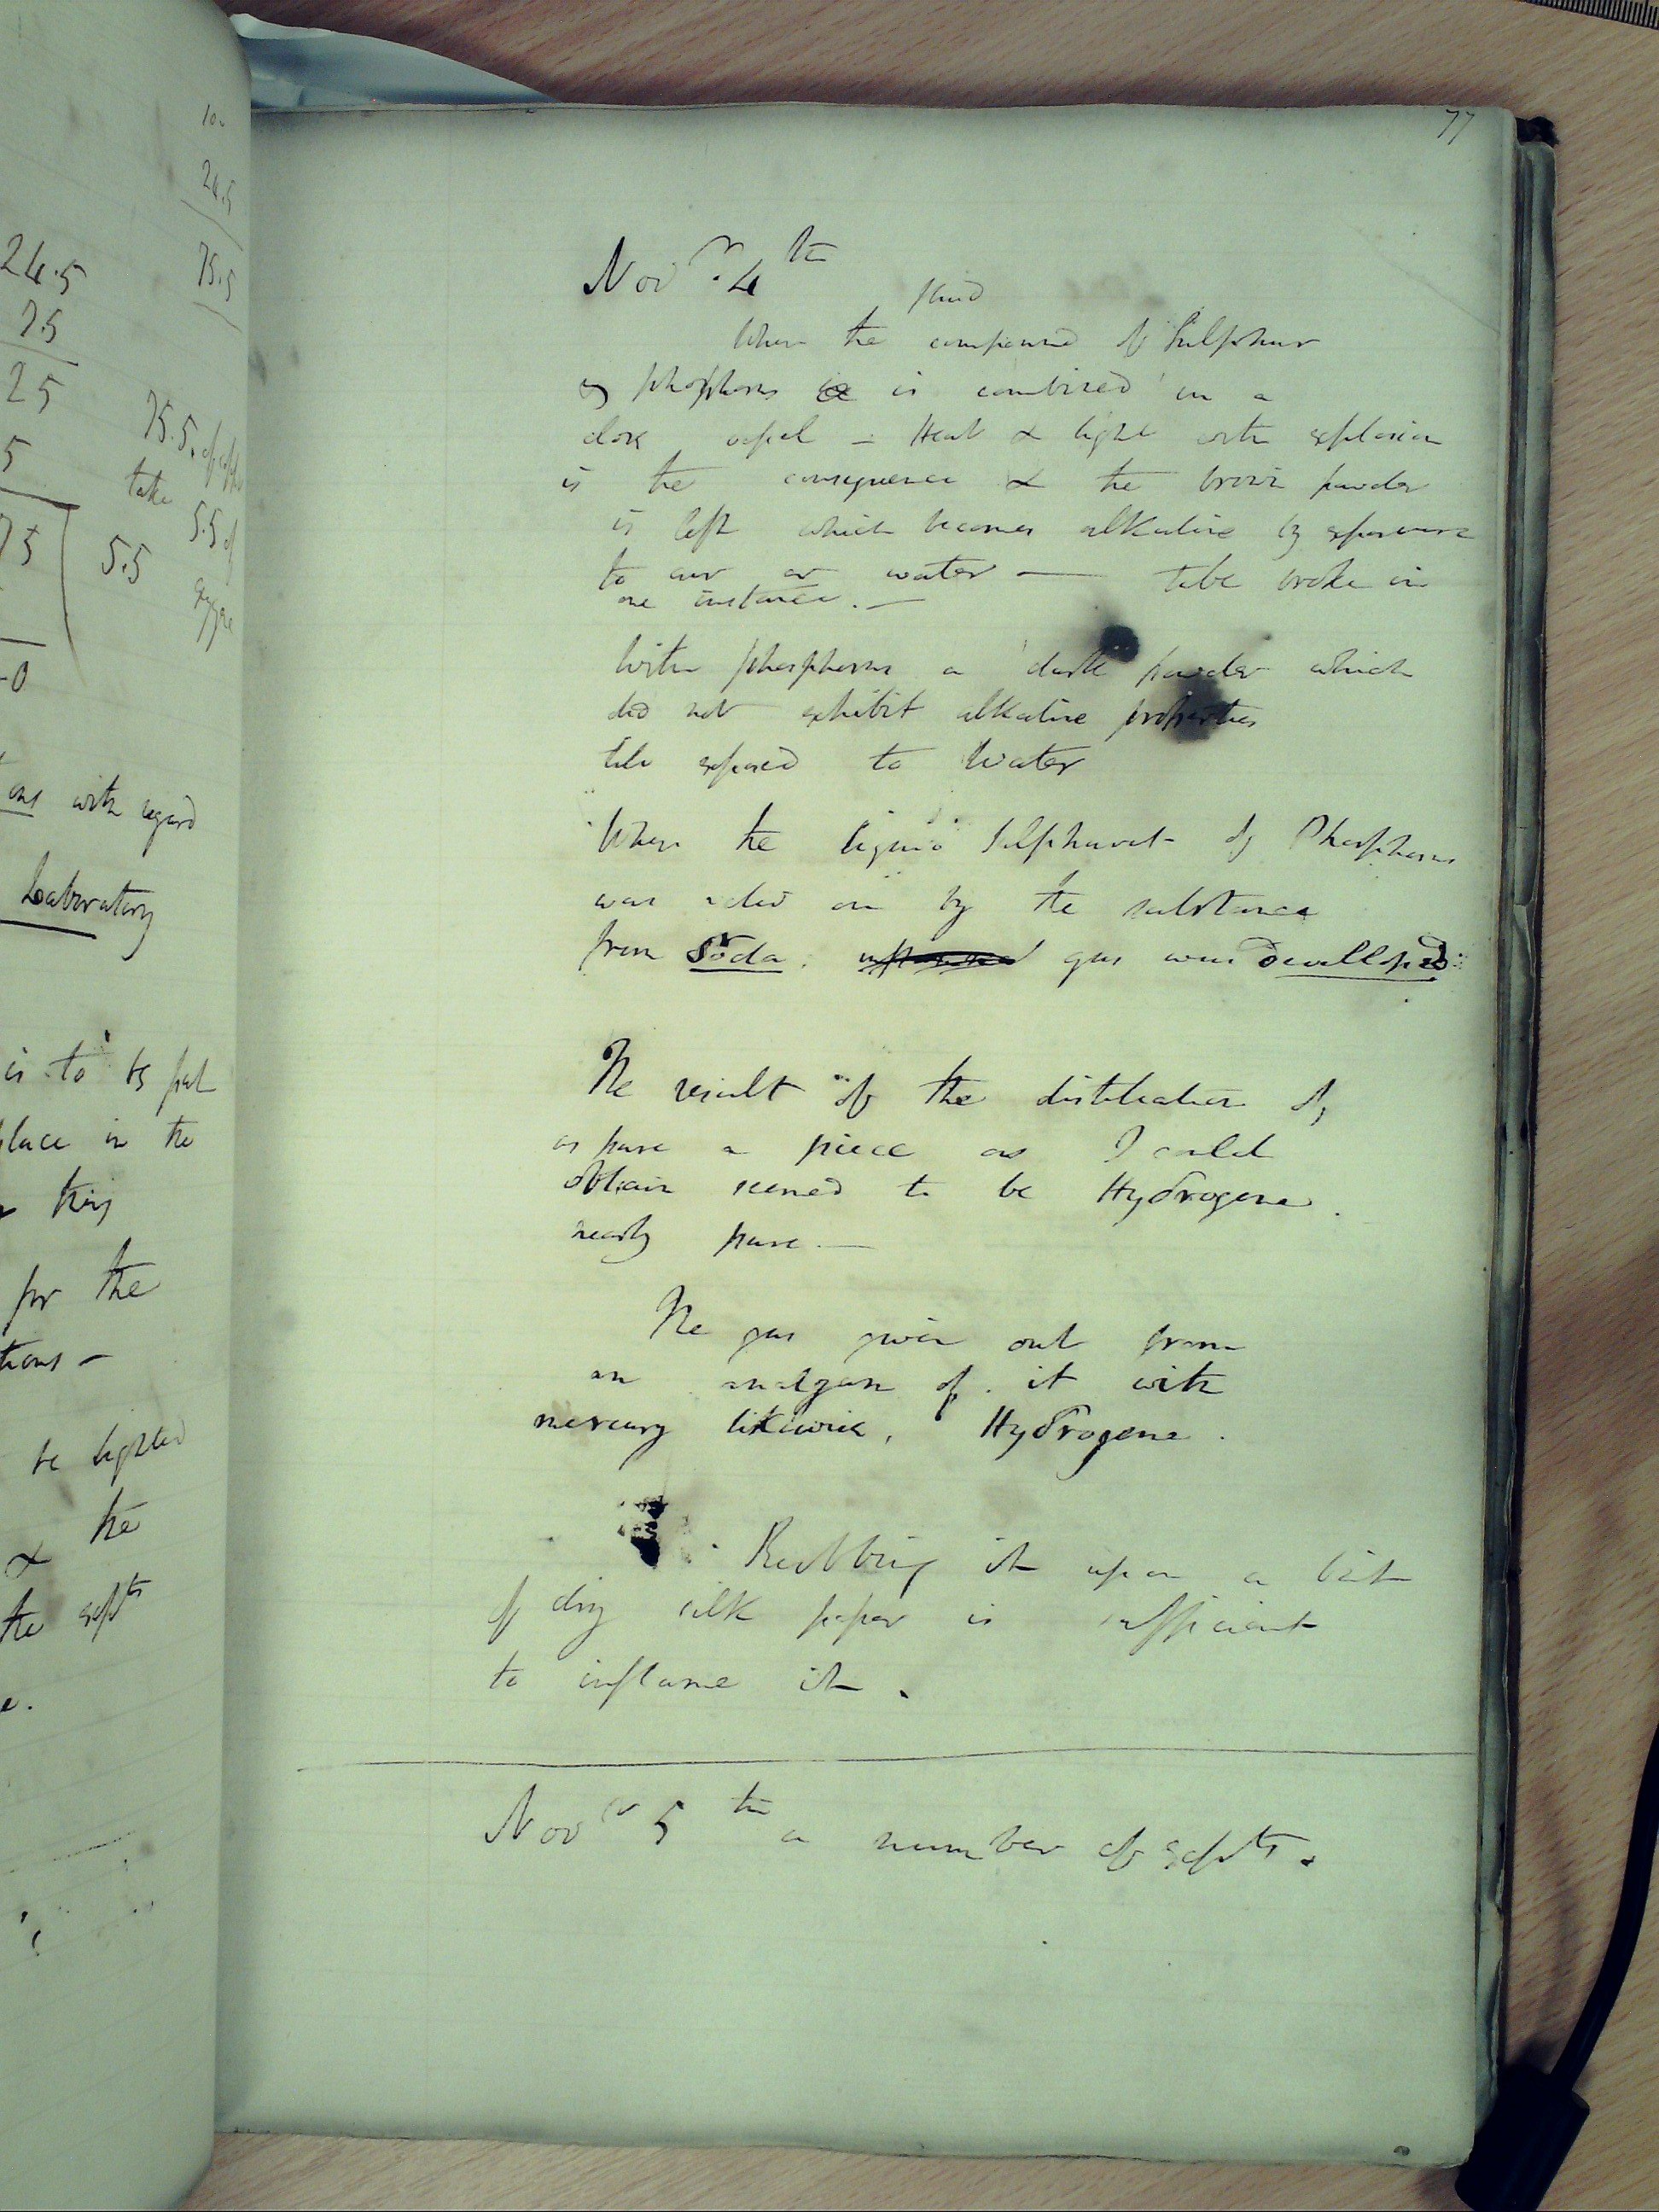 10
24.5
75.5
24.5
7.5
25
5
75
5.5
75.5. of
take
5.5 of
0
ons with regard
Laboratory
is to be put
place in the
this
for the
tions -
be lighted
& the
the expts
e.
77
Novr. 4th
fluid
When the compound of Sulphur
& phosphorus is combined in a
close vessel - Heat & light with explosion
is the consequence & the brown powder
is left which becomes alkaline by exposure
to air or water — tube broke in
one instance. —
With phosphorus a dark powder which
did not exhibit alkaline properties
till exposed to Water
When the liquid Sulphuret of Phosphorus
was acted on by the substance
from Soda. gas was Develloped.
The result of the distillation of
as pure a piece as I could
obtain seemed to be Hydrogene.
nearly pure. —
The gas given out from
an amalgam of it with
mercury likewise, Hydrogene.
Rubbing it upon a bit
of dry silk paper is sufficient
to inflame it.
Novr 5th a number of expts.